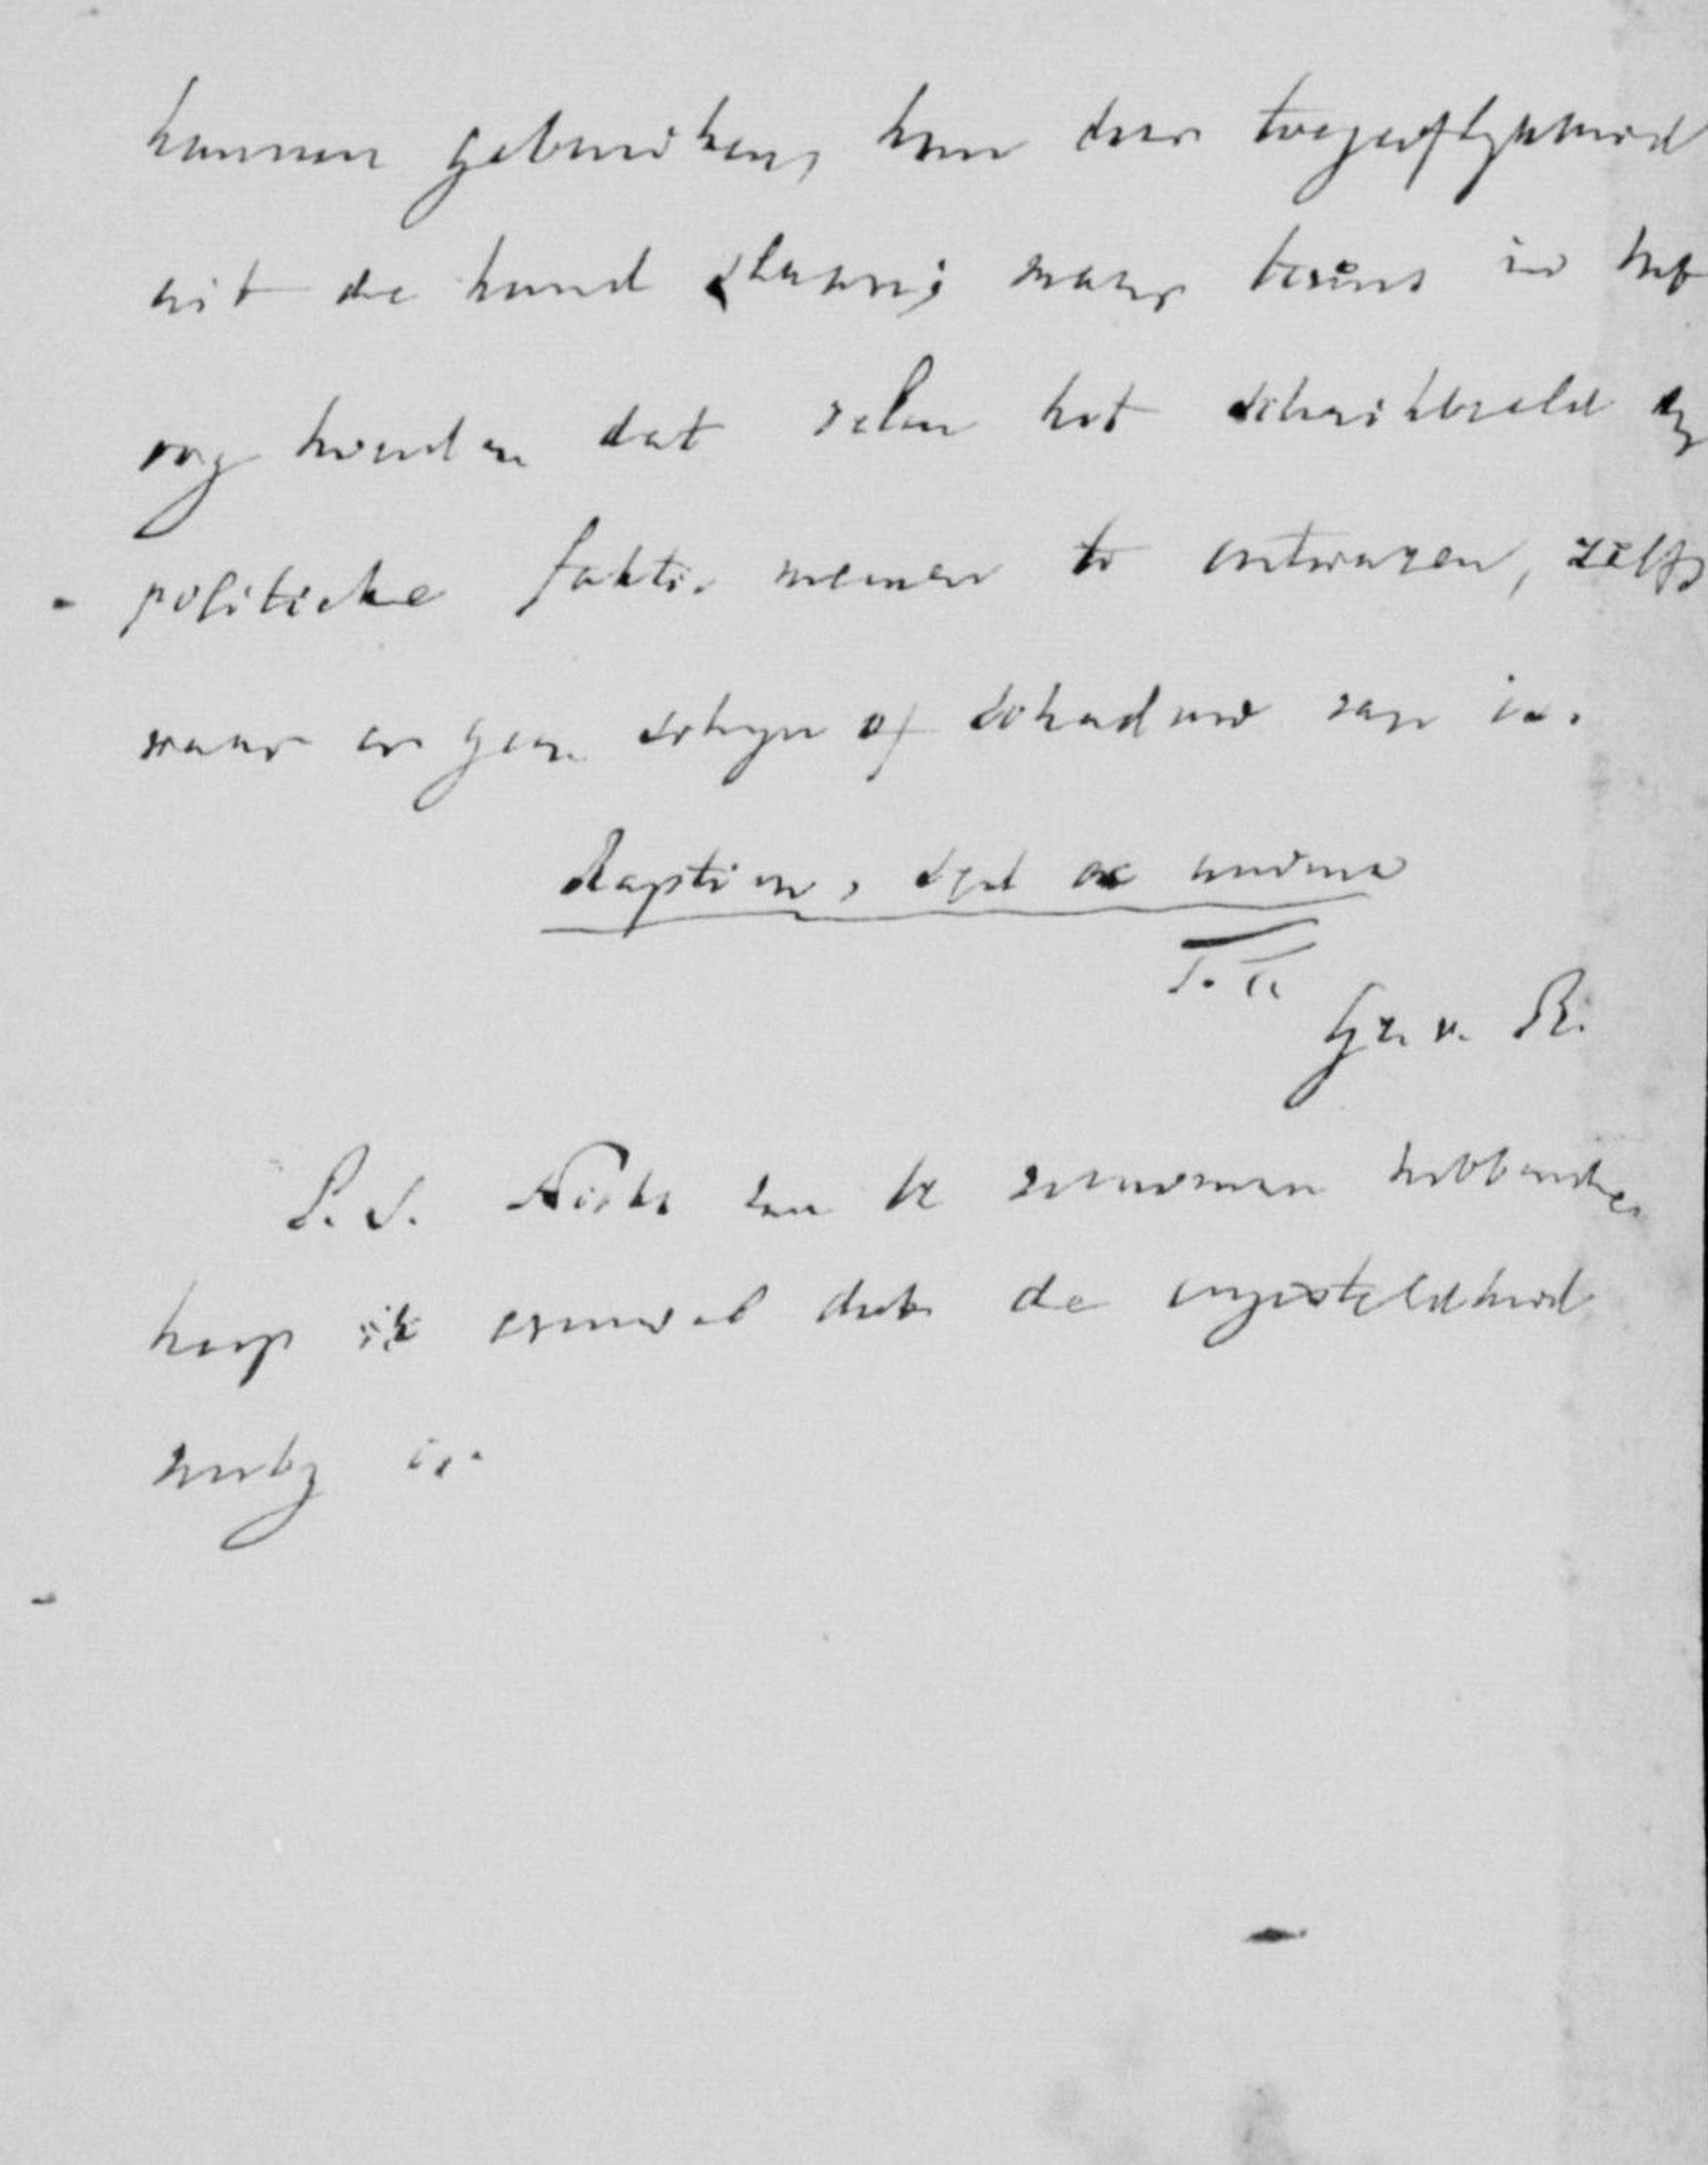 kunnen gebruiken, hem door toegeeflykheid
uit de hand slaan; maar tevens in het
oog houden dat velen het schrikbeeld der
politieke faktie meenen te ontwaren, zelfs
waar er geen schyn of schaduw van is.
Raptim, sed ex animo
T.T.
Gr. v. Pr.
P.S. Niets van U vernomen hebbende,
hoop ik evenwel dat de ongesteldheid
voorby is.